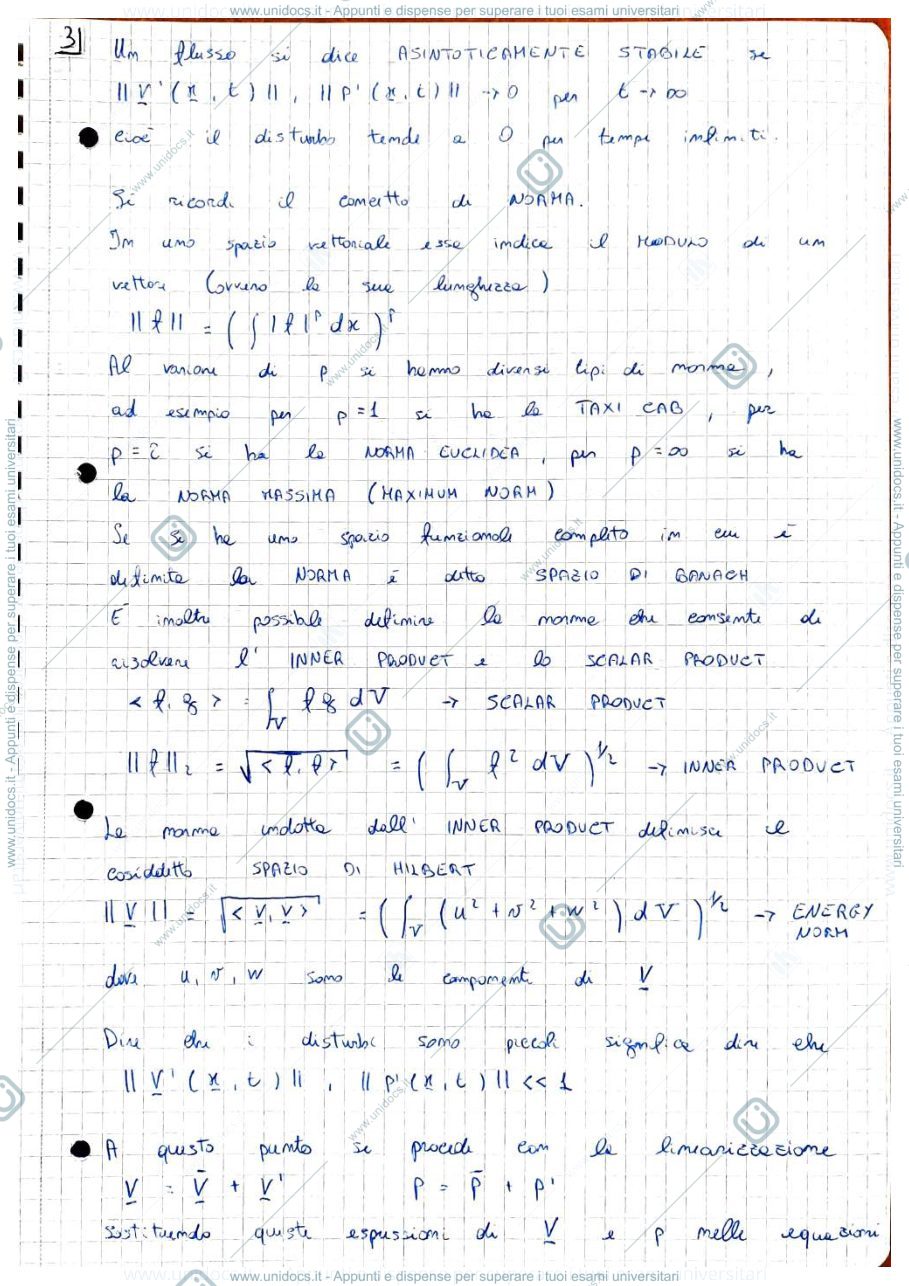 www.unidocs.it - Appunti e dispense per superare i tuoi esami universitari
3)
Un flusso si dice ASINTOTICAMENTE STABILE se
|| V' (x, t) ||, || P' (x, t) || → 0 per t → ∞
cioè il disturbo tende a 0 per tempi infiniti.
Si ricordi il concetto di NORMA.
In uno spazio vettoriale essa indica il MODULO di un
vettore (ovvero la sua lunghezza)
|| f || = ( ∫ | f |^p dx )^p
Al variare di p si hanno diversi tipi di norma,
ad esempio per p = 1 si ha la TAXI CAB, per
p = 2 si ha la NORMA EUCLIDEA, per p = ∞ si ha
la NORMA MASSIMA (MAXIMUM NORM)
Se si ha uno spazio funzionale completo in cui è
definita la NORMA è detto SPAZIO DI BANACH
E inoltre possibile definire la norma che consente di
risolvere l' INNER PRODUCT e lo SCALAR PRODUCT
< f, g > = ∫_V f g dV → SCALAR PRODUCT
|| f ||₂ = √< f, f > = ( ∫_V f² dV )^1/2 → INNER PRODUCT
La norma indotta dall' INNER PRODUCT definisce il
cosiddetto SPAZIO DI HILBERT
|| V || = √< V, V > = ( ∫_V ( u² + v² + w² ) dV )^1/2 → ENERGY NORM
dove u, v, w sono le componenti di V
Dire che i disturbi sono piccoli significa dire che
|| V' ( x, t ) ||, || P' ( x, t ) || << 1
A questo punto si procede con la linearizzazione
V = V̄ + V' P = P̄ + P'
sostituendo queste espressioni di V e p nelle equazioni
www.unidocs.it - Appunti e dispense per superare i tuoi esami universitari